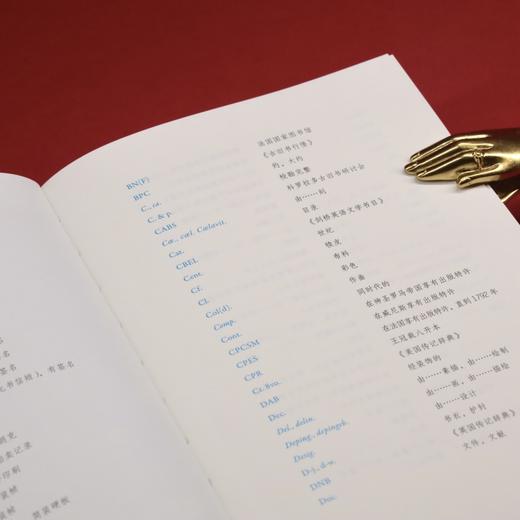 名
签名
有签名
拍卖记录
印刷
装帧
装帧
简装硬板
BN(F) 法国国家图书馆
BPC 《古旧书行情》
C., ca. 约，大约
C. & p. 检勘完整
CABS 科罗拉多古旧书研讨会
Cæ., cæl. Cælavit. 由……刻
Cat. 目录
CBEL 《剑桥英语文学书目》
Cent. 世纪
Cf. 犊皮
Cl. 布料
Col[d]. 彩色
Comp. 作曲
Cont. 同时代的
CPCSM 在神圣罗马帝国享有出版特许
CPES 在威尼斯享有出版特许
CPR 在法国享有出版特许，直到1792年
Cr. 8vo. 王冠八开本
DAB 《美国传记辞典》
Dec. 经装饰的
Del., delin. 由……素描，由……绘制
Deping., depingeb. 由……画，由……描绘
Desig. 由……设计
D-j., d-w. 书衣，护封
DNB 《英国传记辞典》
Doc. 文件，文献